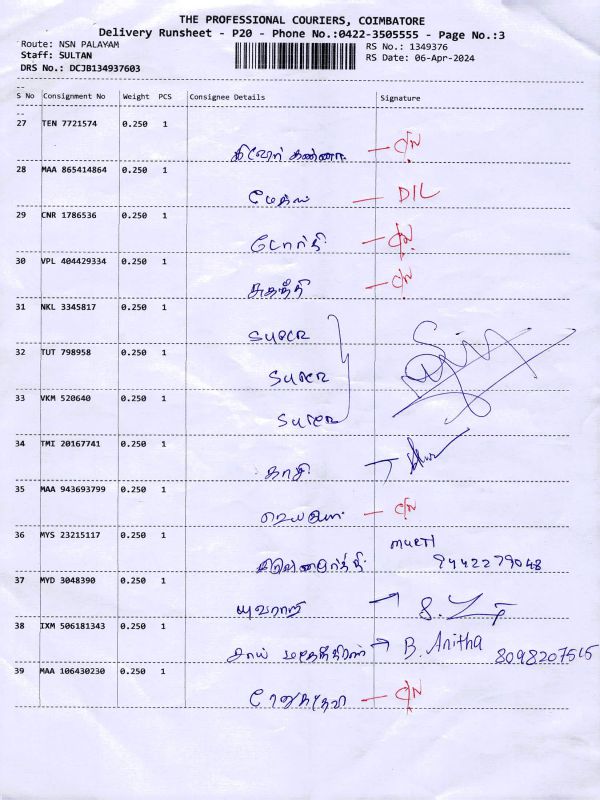 THE PROFESSIONAL COURIERS, COIMBATORE
Delivery Runsheet - P20 - Phone No.:0422-3505555 - Page No.:3
Route: NSN PALAYAM RS No.: 1349376
Staff: SULTAN RS Date: 06-Apr-2024
DRS No.: DCJB134937603
S No Consignment No Weight PCS Consignee Details Signature
27 TEN 7721574 0.250 1
D/N
28 MAA 865414864 0.250 1
DIL
29 CNR 1786536 0.250 1
D/N
30 VPL 404429334 0.250 1
D/N
31 NKL 3345817 0.250 1
SUPER
32 TUT 798958 0.250 1
SUPER
33 VKM 520640 0.250 1
SUPER
34 TMI 20167741 0.250 1
காசி
35 MAA 943693799 0.250 1
D/N
36 MYS 23215117 0.250 1
9442279048
37 MYD 3048390 0.250 1
யுவராஜ்
38 IXM 506181343 0.250 1
சாய் B. Anitha 8098207515
39 MAA 106430230 0.250 1
D/N